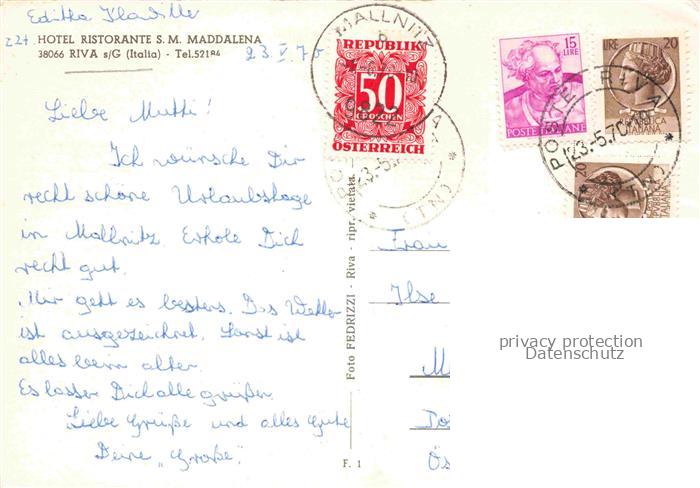 Editha
z Zt. HOTEL RISTORANTE S. M. MADDALENA
38066 RIVA s/G (Italia) - Tel. 52184
23. V. 70
Liebe Mutti!
Ich wünsche Dir
recht schöne Urlaubstage
in Mallnitz. Erhole Dich
recht gut.
Mir geht es bestens. Das Wetter
ist ausgezeichnet. Sonst ist
alles beim alten.
Es lassen Dich alle grüßen.
Liebe Grüße und alles Gute
Deine „Große".
Foto FEDRIZZI - Riva - ripr. vietata
F. 1
MALLNITZ
9822
REPUBLIK
50
GROSCHEN
ÖSTERREICH
23.-5.
(TN)
15
LIRE
POSTE ITALIANE
LIRE 20
ITALIANA
POSTE RIVA
23.-5.70
(TN)
20
ITALIANA
Frau
Ilse
M
Ös
privacy protection
Datenschutz